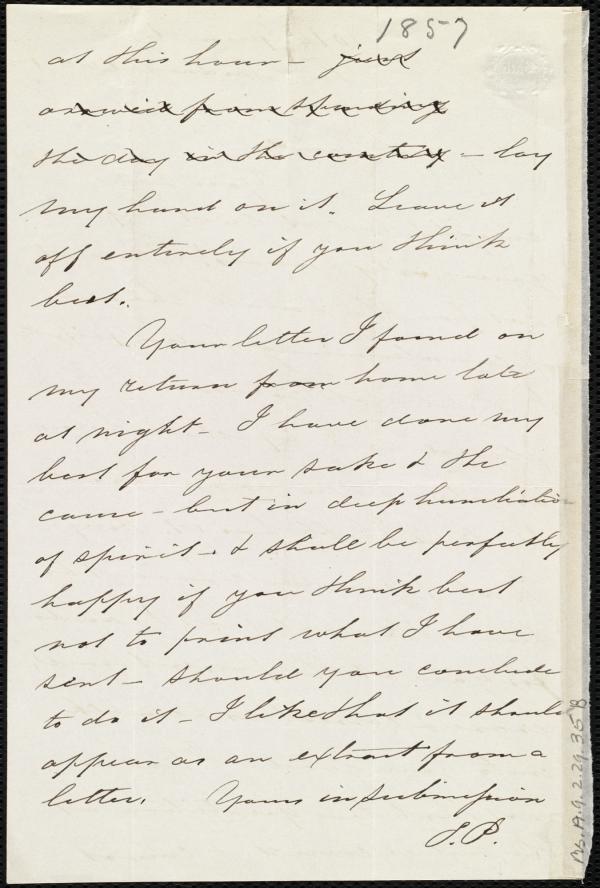 1857
at this hour – just
arrived from spending
the day in the country – lay
my hand on it. Leave it
off entirely if you think
best.
Your letter I found on
my return from home late
at night – I have done my
best for your sake & the
cause – but in deep humiliation
of spirit – & shall be perfectly
happy if you think best
not to print what I have
sent – should you conclude
to do it – I like that it should
appear as an extract from a
letter. Yours in submission
S.P.
Ms.A.9.2.29.35B